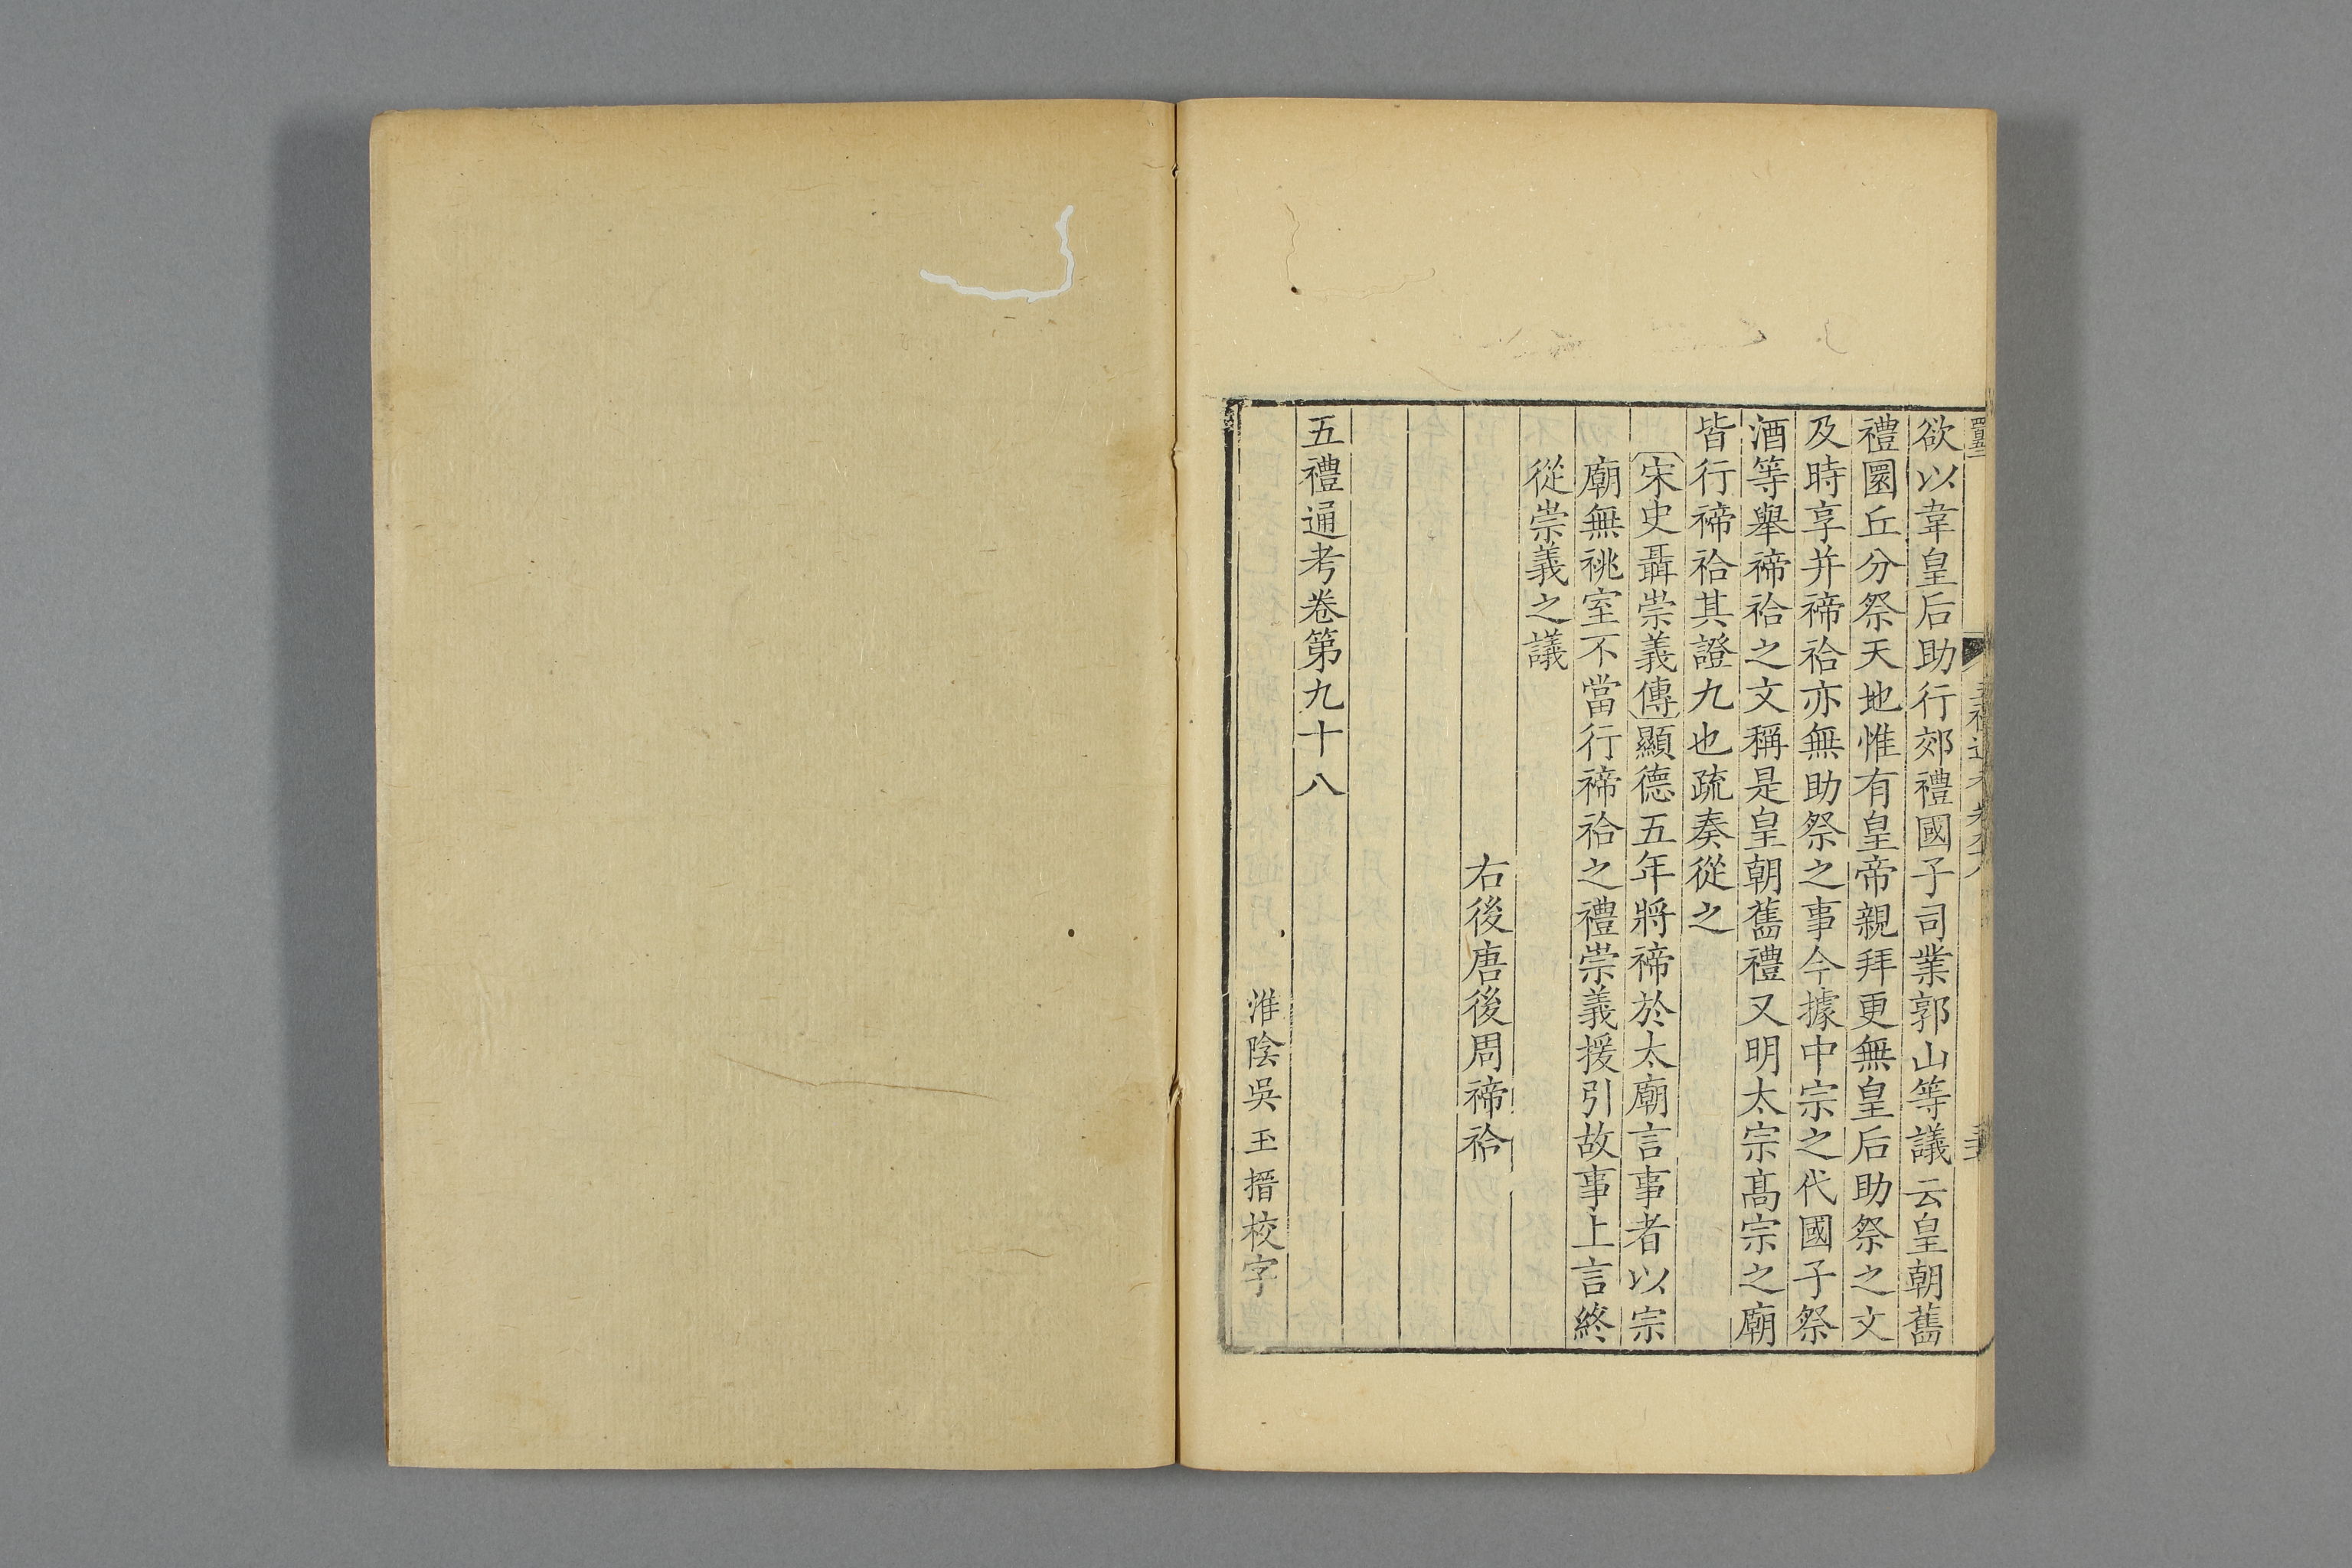 欲以韋皇后助行郊禮國子司業郭山等議云皇朝舊
禮圜丘分祭天地惟有皇帝親拜更無皇后助祭之文
及時享并禘祫亦無助祭之事今據中宗之代國子祭
酒等舉禘祫之文稱是皇朝舊禮又明太宗高宗之廟
皆行禘祫其證九也疏奏從之
宋史聶崇義傳顯德五年將禘於太廟言事者以宗
廟無祧室不當行禘祫之禮崇義援引故事上言終
從崇義之議
右後唐後周禘祫
五禮通考卷第九十八
淮陰吳玉搢校字